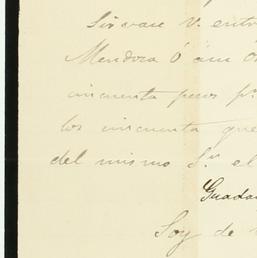 Sírvase V. entr
Mendoza ó á su ó
cincuenta pesos p.
los cincuenta que
del mismo Sr. el
Guada
Soy de